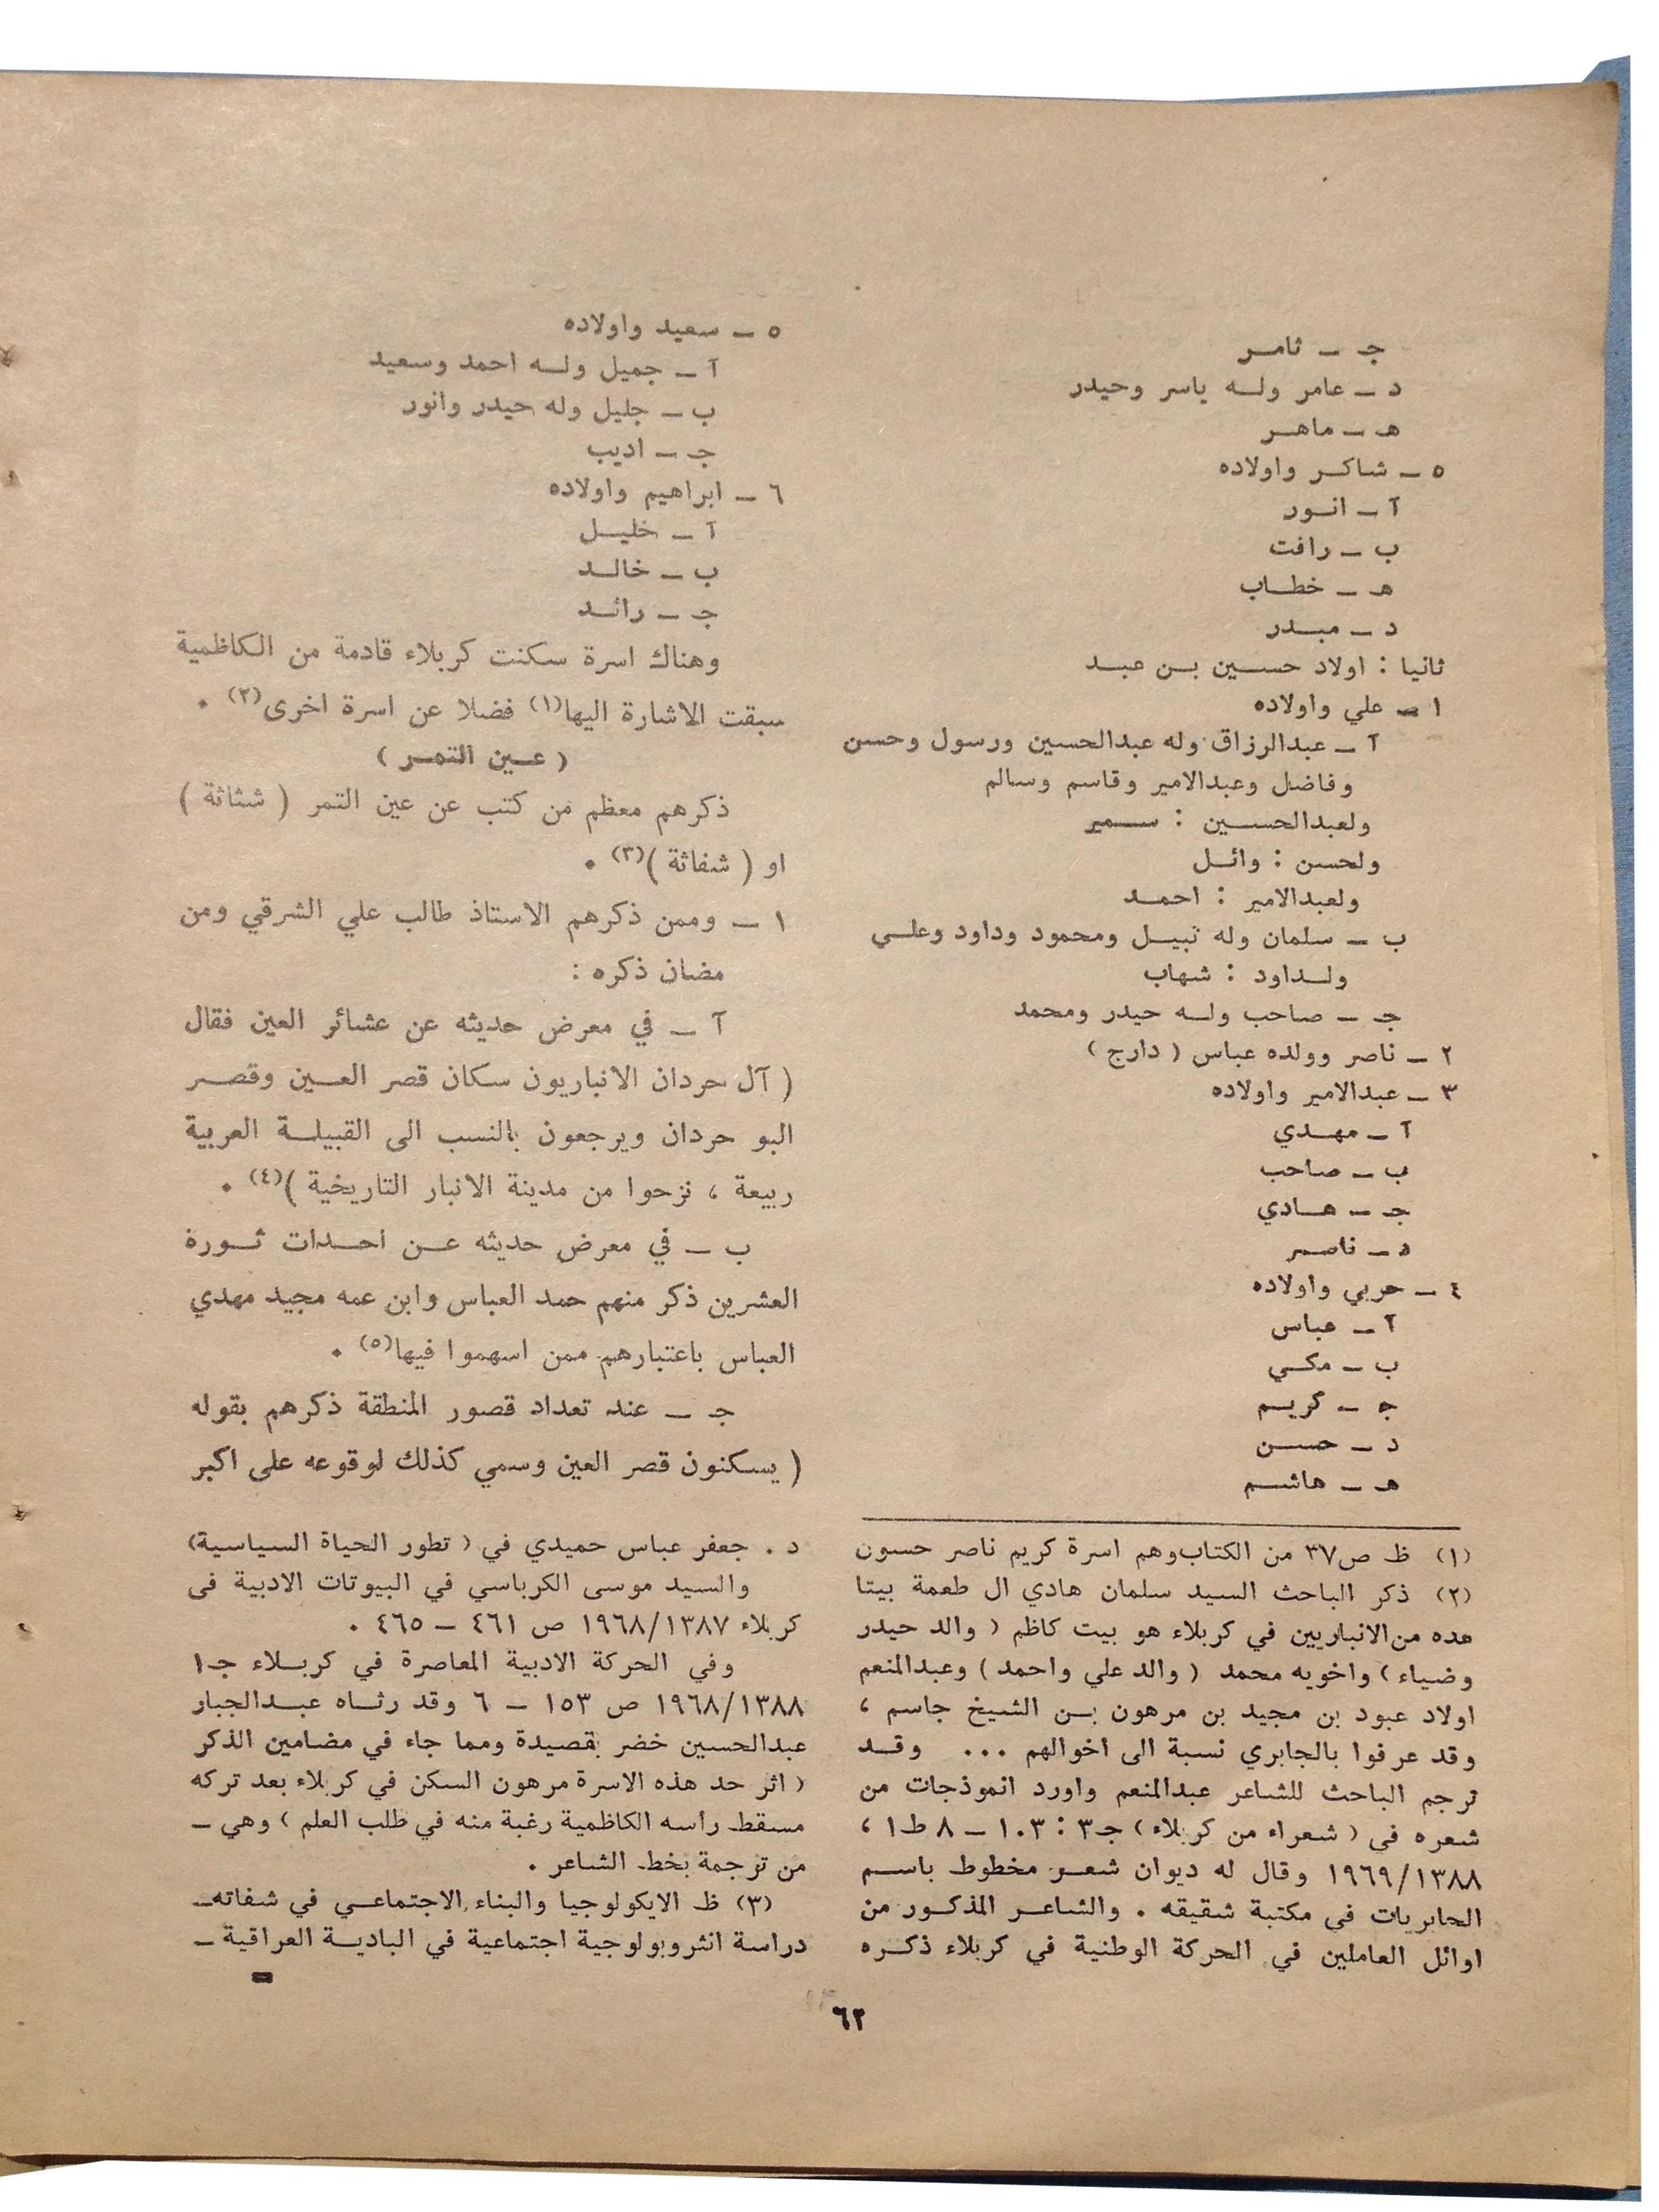 جـ ـ ثامـر
د ـ عامر ولـه ياسر وحيدر
هـ ـ ماهـر
٥ ـ شاكـر واولاده
آ ـ انـور
ب ـ رافت
هـ ـ خطـاب
د ـ مبـدر
ثانيا : اولاد حسـين بـن عبـد
١ ـ علي واولاده
آ ـ عبدالرزاق وله عبدالحسين ورسول وحسن
وفاضل وعبدالامير وقاسم وسالم
ولعبدالحسـين : سـمير
ولحسن : وائـل
ولعبدالامير : احمـد
ب ـ سلمان وله نبيـل ومحمود وداود وعلـي
ولـداود : شهاب
جـ ـ صاحب ولـه حيدر ومحمد
٢ ـ ناصر وولده عباس ( دارج )
٣ ـ عبدالامير واولاده
آ ـ مهـدي
ب ـ صاحب
جـ ـ هـادي
د ـ ناصـر
٤ ـ حربي واولاده
آ ـ عباس
ب ـ مكـي
جـ ـ كريـم
د ـ حسـن
هـ ـ هاشـم
٥ ـ سعيد واولاده
آ ـ جميل ولـه احمد وسعيد
ب ـ جليل وله حيدر وانور
جـ ـ اديب
٦ ـ ابراهيم واولاده
آ ـ خليـل
ب ـ خالـد
جـ ـ رائـد
وهناك اسرة سكنت كربلاء قادمة من الكاظمية
سبقت الاشارة اليها(١) فضلا عن اسرة اخرى(٢) .
( عـين التمـر )
ذكرهم معظم من كتب عن عين التمر ( شثاثة )
او ( شفاثة )(٣) .
١ ـ وممن ذكرهم الاستاذ طالب علي الشرقي ومن
مضان ذكره :
آ ـ في معرض حديثه عن عشائر العين فقال
( آل حردان الانباريون سكان قصر العـين وقصـر
البو حردان ويرجعون بالنسب الى القبيلـة العربية
ربيعة ، نزحوا من مدينة الانبار التاريخية )(٤) .
ب ـ في معرض حديثه عـن احـداث ثـورة
العشرين ذكر منهم حمد العباس وابن عمه مجيد مهدي
العباس باعتبارهم ممن اسهموا فيها(٥) .
جـ ـ عند تعداد قصور المنطقة ذكرهم بقوله
( يسكنون قصر العين وسمي كذلك لوقوعه على اكبر
(١) ظ ص٣٧ من الكتاب وهم اسرة كريم ناصر حسون
(٢) ذكر الباحث السيد سلمان هادي ال طعمة بيتا
هده من الانباريين في كربلاء هو بيت كاظم ( والد حيدر
وضياء ) واخويه محمد ( والد علي واحمد ) وعبدالمنعم
اولاد عبود بن مجيد بن مرهون بـن الشيخ جاسم ،
وقد عرفوا بالجابري نسبة الى اخوالهم ... وقـد
ترجم الباحث للشاعر عبدالمنعم واورد انموذجات من
شعره في ( شعراء من كربلاء ) جـ٣ : ١٠٣ ـ ٨ ط١ ،
١٩٦٩/١٣٨٨ وقال له ديوان شعـر مخطوط باسـم
الجابريات في مكتبة شقيقه . والشاعـر المذكـور من
اوائل العاملين في الحركة الوطنية في كربلاء ذكـره
د . جعفر عباس حميدي في ( تطور الحياة السياسية )
والسيد موسى الكرباسي في البيوتات الادبية في
كربلاء ١٩٦٨/١٣٨٧ ص ٤٦١ ـ ٤٦٥ .
وفي الحركة الادبية المعاصرة في كربـلاء جـ١
١٩٦٨/١٣٨٨ ص ١٥٣ ـ ٦ وقد رثـاه عبـدالجبار
عبدالحسين خضر بقصيدة ومما جاء في مضامين الذكر
( اثر حد هذه الاسرة مرهون السكن في كربلاء بعد تركه
مسقط رأسه الكاظمية رغبة منه في طلب العلم ) وهي ـ
من ترجمة بخط الشاعر .
(٣) ظ الايكولوجيا والبناء الاجتماعـي في شفاثه ـ
دراسة انثروبولوجية اجتماعية في الباديـة العراقية ـ
٦٢